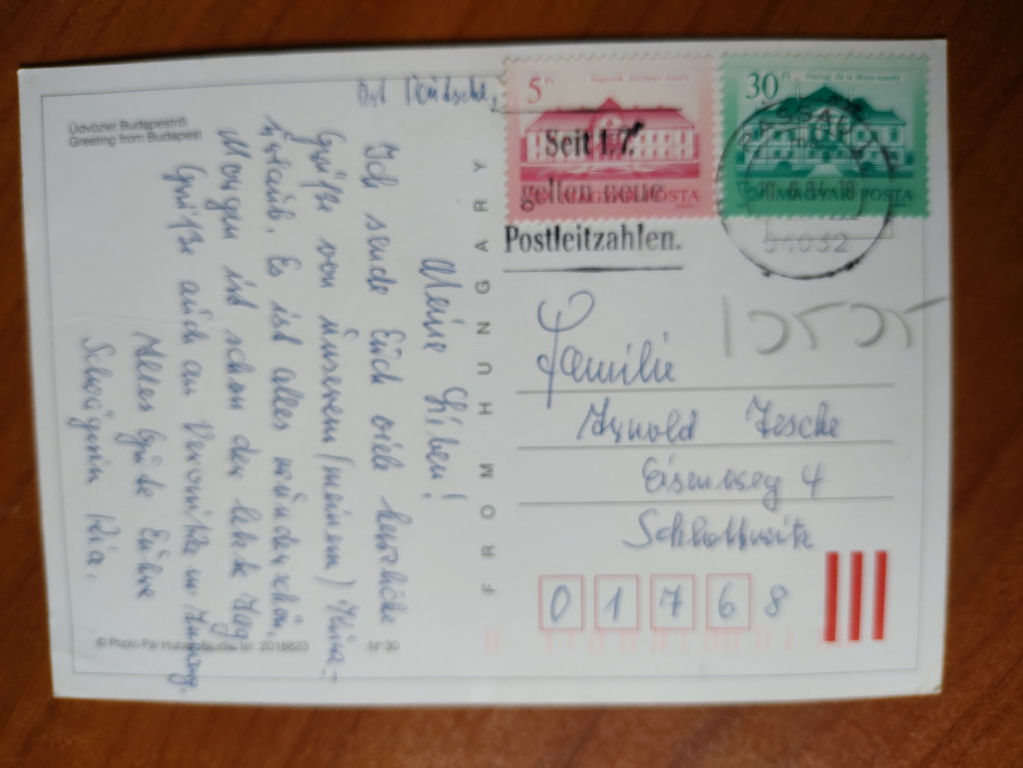 Üdvözlet Budapestről
Greeting from Budapest
Meine Lieben!
Ich sende Euch viele herzliche
Grüße von unserem/meinem
Urlaub. Es ist alles wunderschön.
Morgen ist schon der letzte Tag
Grüße auch an
Alles Gute Eure
Schwägerin Ria.
© Photo Pál Huber Studio Tel 2018823 Nº 30
FROM HUNGARY
5 Ft
MAGYAR POSTA
30 Ft
MAGYAR POSTA
Seit 1.7.
gelten neue
Postleitzahlen.
94032
Familie
Arnold Jesche
Eisenweg 4
Schlottwitz
01768